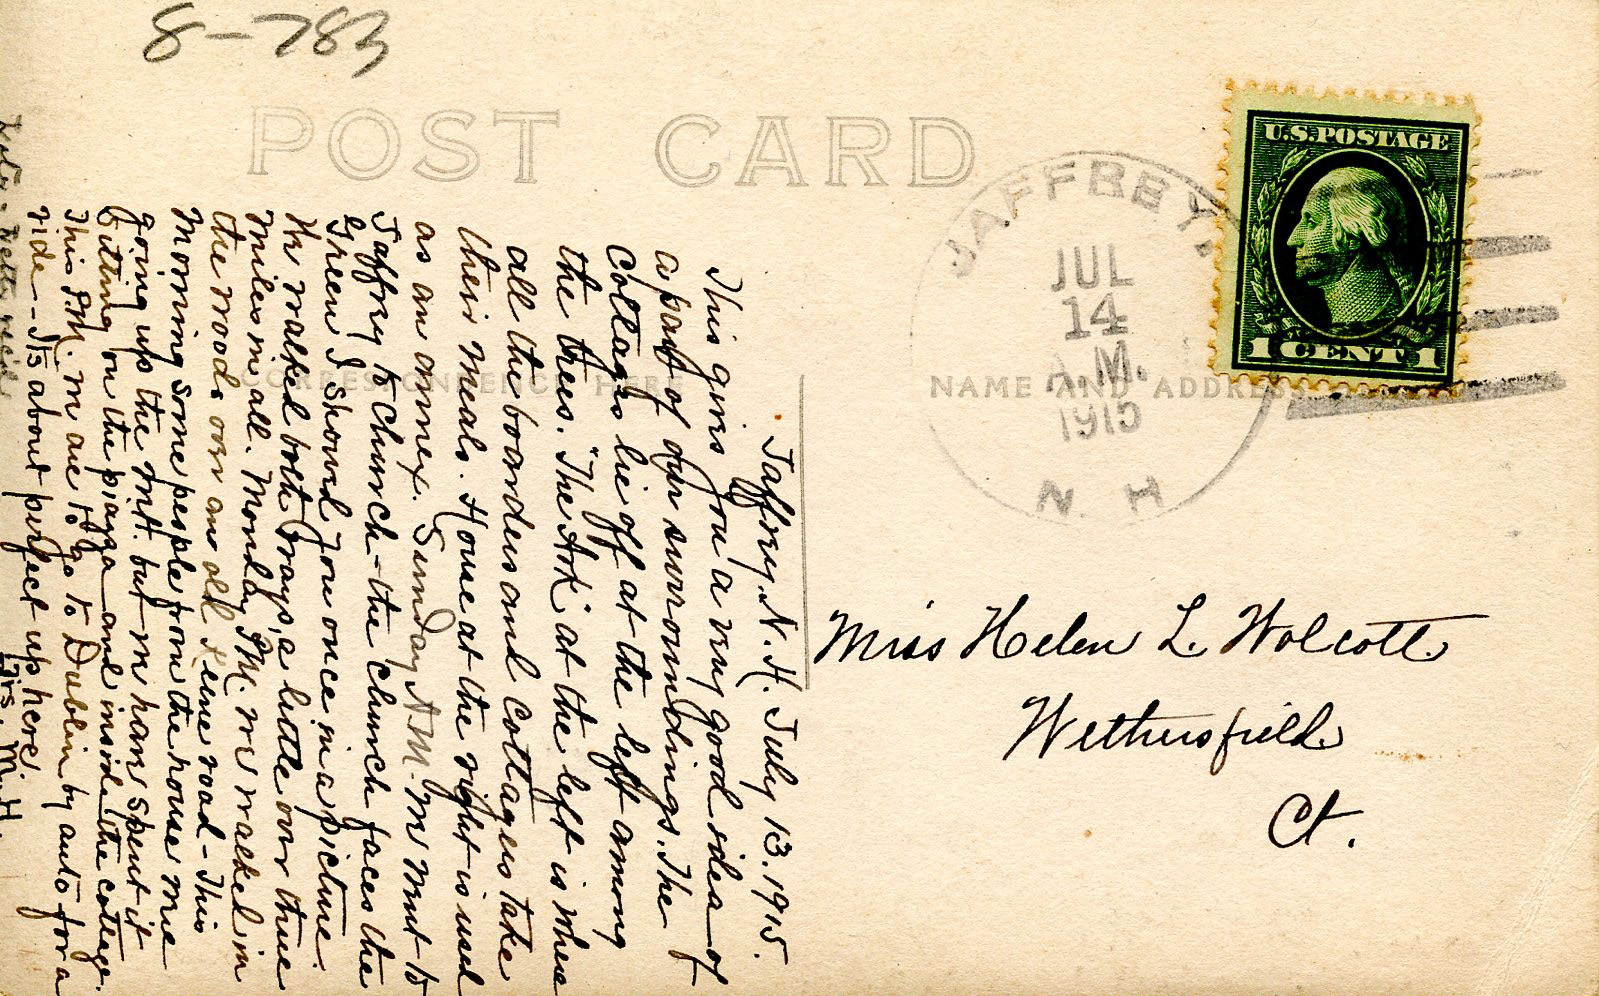 8-783
POST CARD
JAFFREY.
JUL
14
A.M.
1915
N. H
U.S.POSTAGE
1 CENT 1
CORRESPONDENCE HERE
NAME AND ADDRESS
Jaffrey. N. H. July 13. 1915.
This gives you a very good idea of
a part of our surroundings. The
Cottages lie off at the left among
the trees. "The Ark" at the left is where
all the boarders and cottagers take
their meals. House at the right is used
as an annex. Sunday A.M. we went to
Jaffrey to Church - the church faces the
Green I showed you once in a picture.
We walked both ways, a little over three
miles in all. Monday P.M. we walked in
the woods over an old road - This
Morning some people from the house were
going up the Mt. but we have spent it
sitting on the piazza and inside the cottage.
This P.M. we are to go to Dublin by auto for a
ride - It's about perfect up here.
M. H.
Miss Helen L. Wolcott
Wethersfield
Ct.